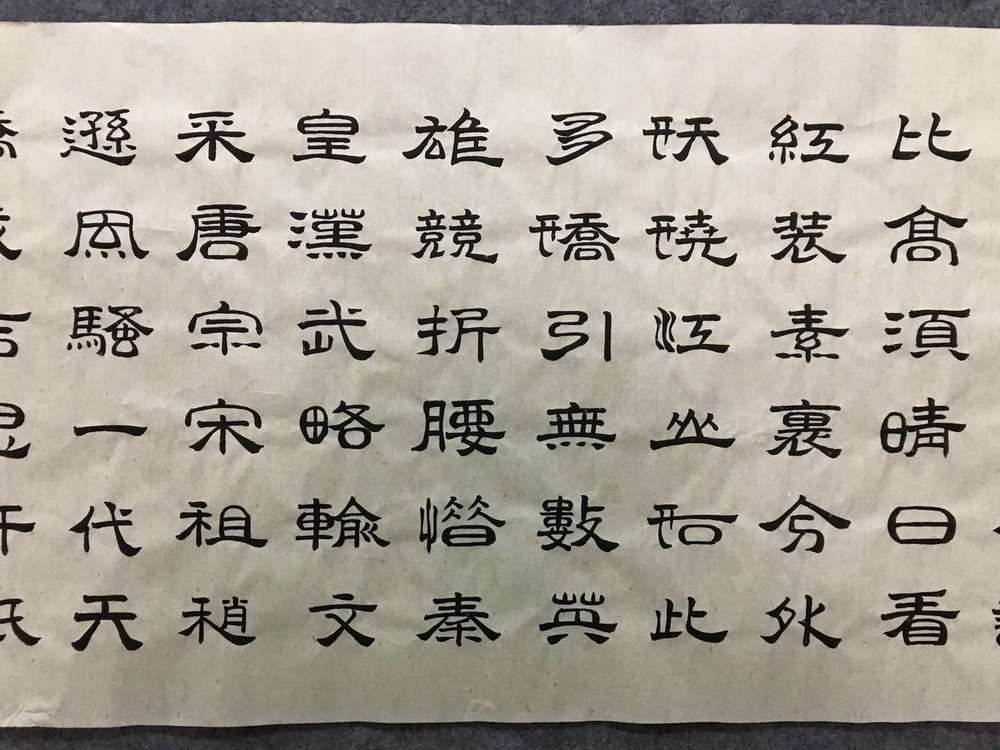 比髙須晴日看
紅装素裏分外
妖嬈江山如此
多嬌引無數英
雄競折腰惜秦
皇漢武略輸文
采唐宗宋祖稍
遜風騷一代天